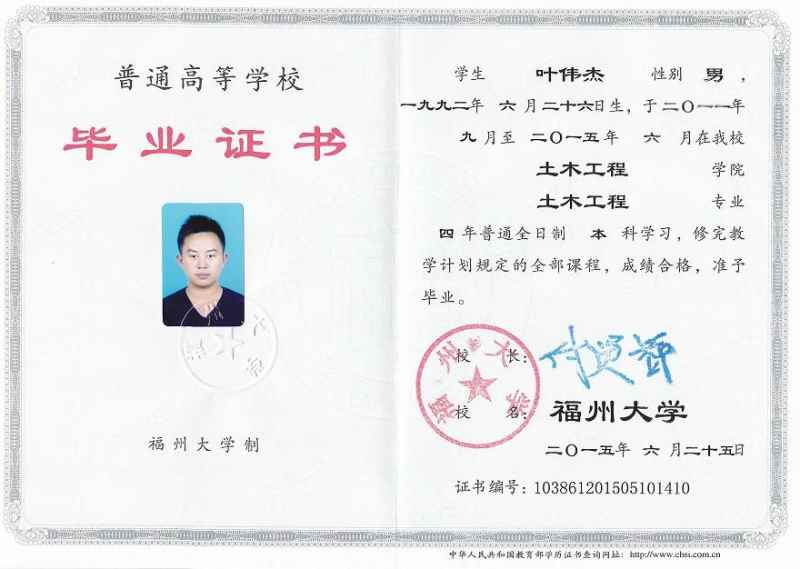 普通高等学校
毕业证书
福州大学制
学生 叶伟杰 性别 男，
一九九二年 六月二十六日生，于二〇一一年
九月至 二〇一五年 六 月在我校
土木工程 学院
土木工程 专业
四 年普通全日制 本 科学习，修完教
学计划规定的全部课程，成绩合格，准予
毕业。
校 长：
福州大学
校 名：福州大学
二〇一五年 六 月二十五日
证书编号：103861201505101410
中华人民共和国教育部学历证书查询网址：http://www.chsi.com.cn